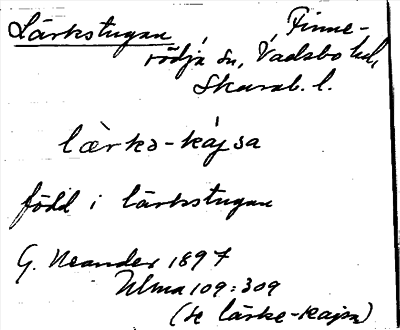 Lärkstugan, Finne-
rödja sn, Vadsbo hd,
Skarab. l.
lærks-kajsa
född i lärkstugan
G. Neander 1897
Ulma 109:309
(se lärke-kajsa)